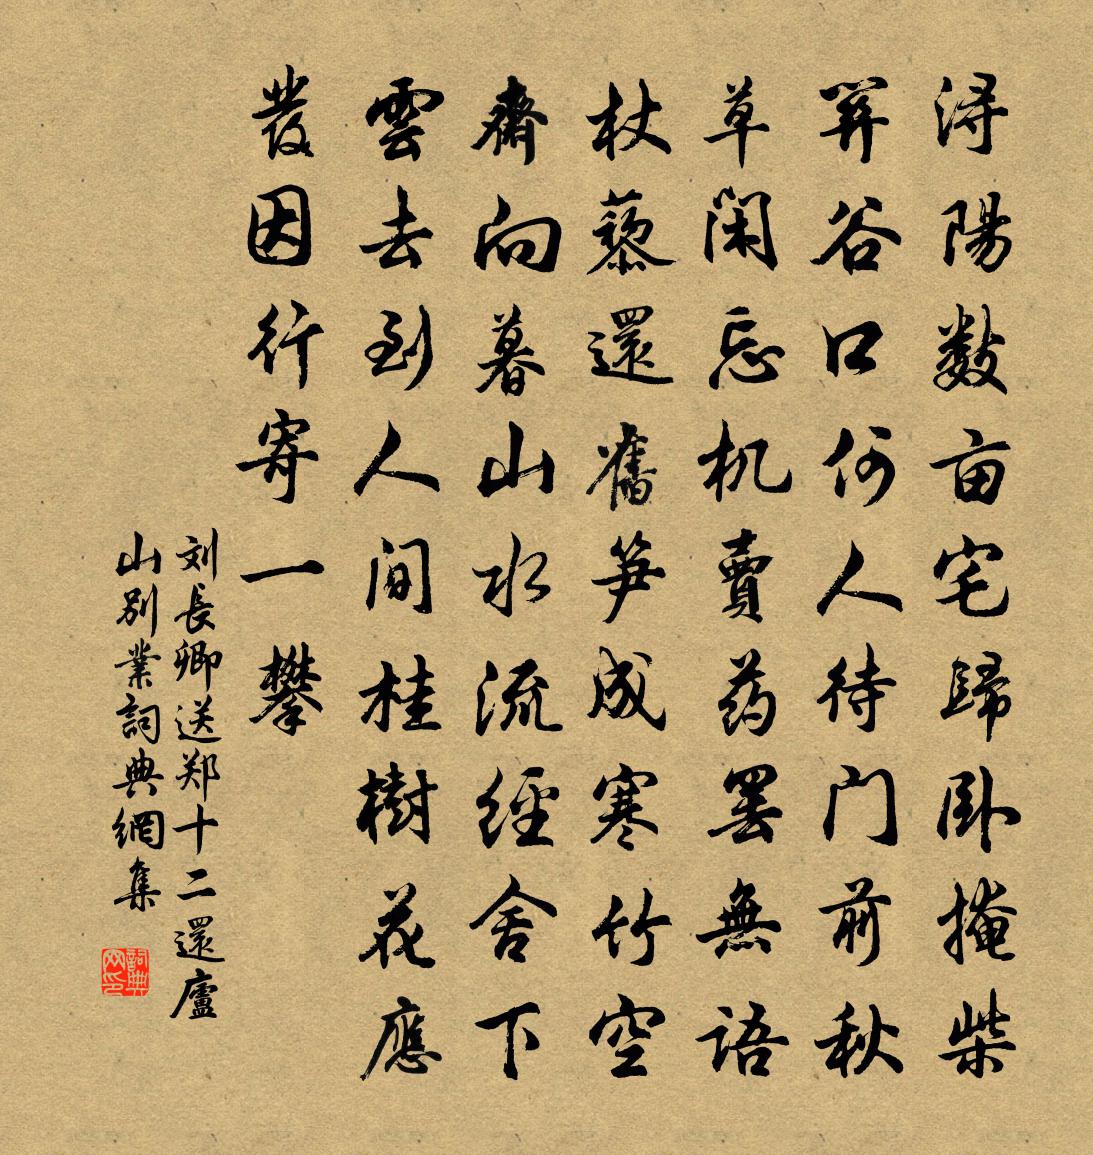 浔陽數亩宅歸卧掩柴
關谷口何人待门前秋
草閑忘机賣药罢無語
杖藜還舊笋成寒竹空
齋向暮山水流經舍下
雲去到人间桂樹花應
發因行寄一攀
刘長卿送郑十二還廬
山别業詞典網集
詞典网印